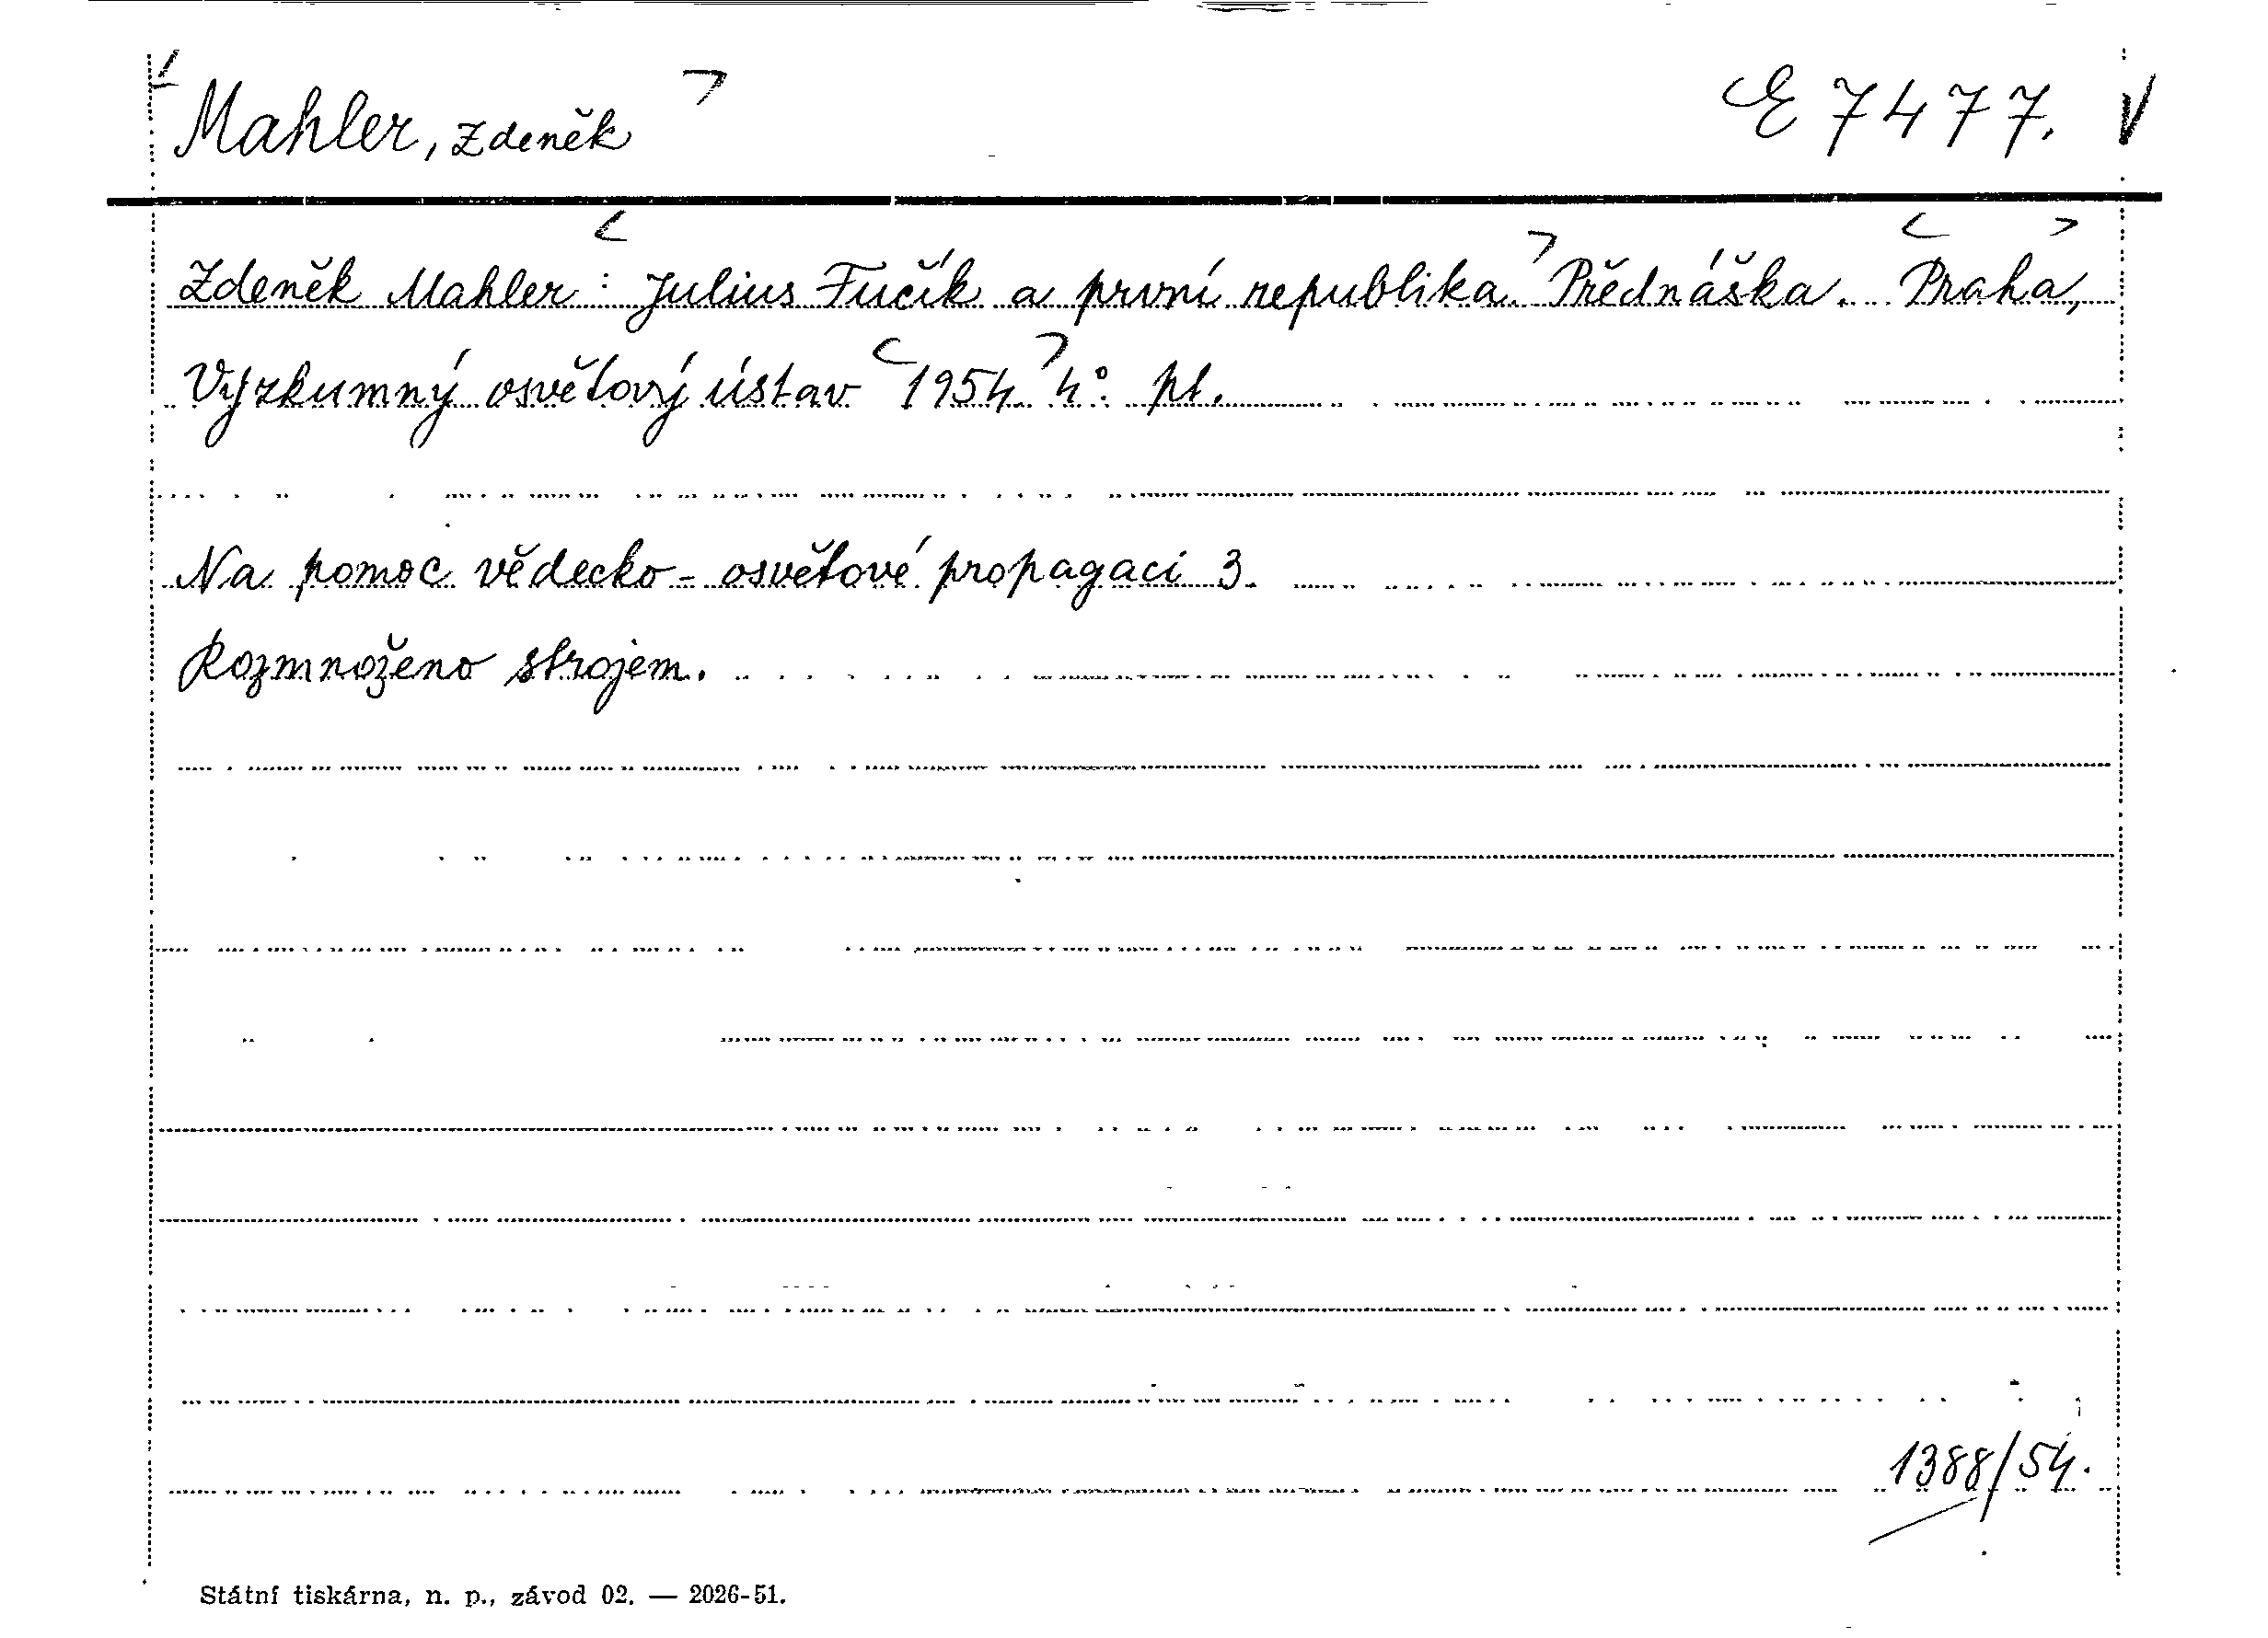 Mahler, Zdeněk
E 7477.
Zdeněk Mahler: Julius Fučík a první republika. Přednáška. Praha,
Výzkumný osvětový ústav 1954. 4°. pl.
Na pomoc vědecko-osvětové propagaci 3.
Rozmnoženo strojem.
1388/54.
Státní tiskárna, n. p., závod 02. — 2026-51.